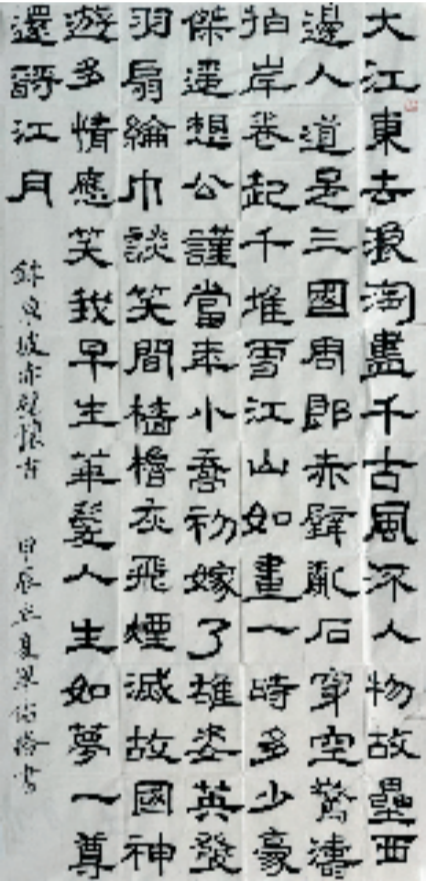 大江東去浪淘盡千古風流人物故壘西
邊人道是三國周郎赤壁亂石穿空驚濤
拍岸卷起千堆雪江山如畫一時多少豪
傑遥想公謹當年小喬初嫁了雄姿英發
羽扇綸巾談笑間檣櫓灰飛煙滅故國神
遊多情應笑我早生華髮人生如夢一尊
還酹江月
錄東坡赤壁懷古 甲辰立夏書